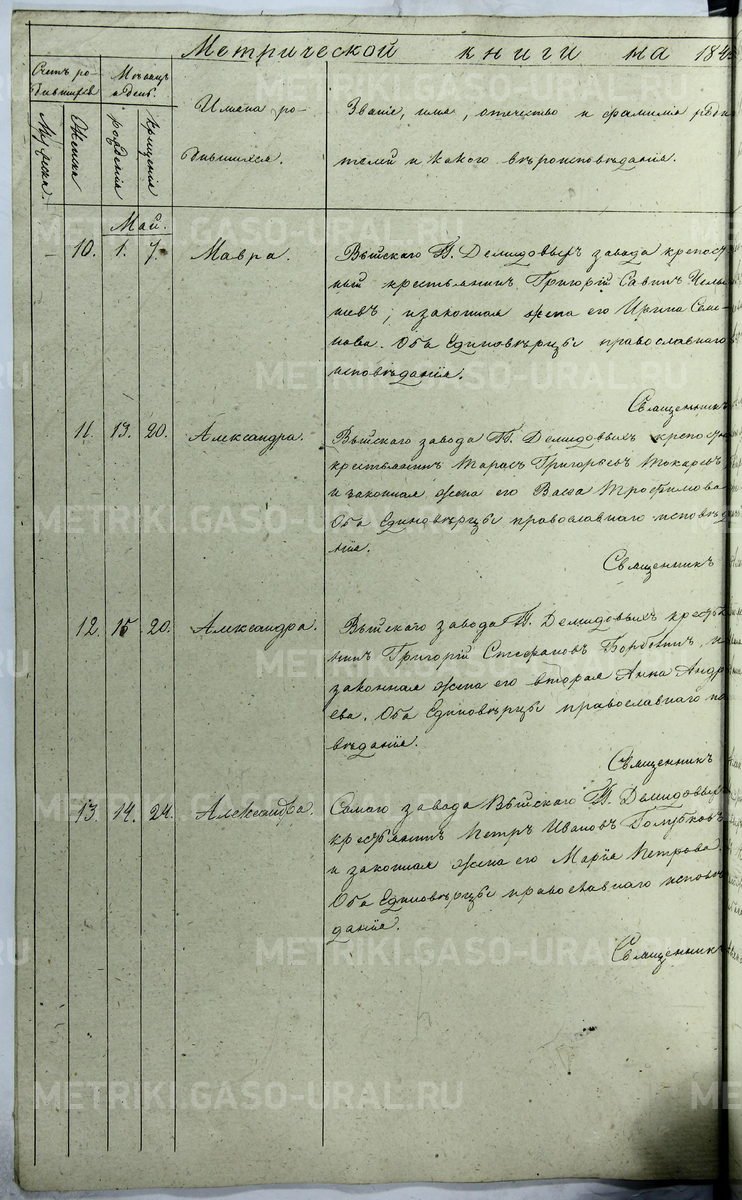 Метрической книги на 184
Счетъ ро-
дившихся
Мѣсяцъ
и день.
Мужска.
Женска
рожденія
крещенія
Имяна ро-
дившихся.
Званіе, имя, отечество и фамилія роди
телей и какого вѣроисповѣданія.
Май.
10. 1. 7. Мавра.
Выйскаго Г. Демидовыхъ завода крепос
ный крестьянинъ Григорій Савинъ
и законная жена его Ирина Семе-
нова. Оба Единовѣрцы православнаго
исповѣданія.
Священникъ
11. 13. 20. Александра.
Выйскаго завода Г. Демидовыхъ крепосн
крестьянинъ Тарасъ Григорьевъ Токаревъ
и законная жена его Васса Трофимова
Оба Единовѣрцы православнаго исповѣда
нія.
Священникъ
12. 15. 20. Александра.
Выйскаго завода Г. Демидовыхъ крестья
нинъ Григорій Стефановъ и
законная жена его вторая Анна Андр
ева. Оба Единовѣрцы православнаго ис
вѣданія.
Священникъ
13. 14. 24. Александра.
Самаго завода Выйскаго Г. Демидовых
крестьянинъ Петръ Ивановъ Голубковъ
и законная жена его Марія Петрова.
Оба Единовѣрцы православнаго исповѣ
данія.
Священникъ
METRIKI.GASO-URAL.RU